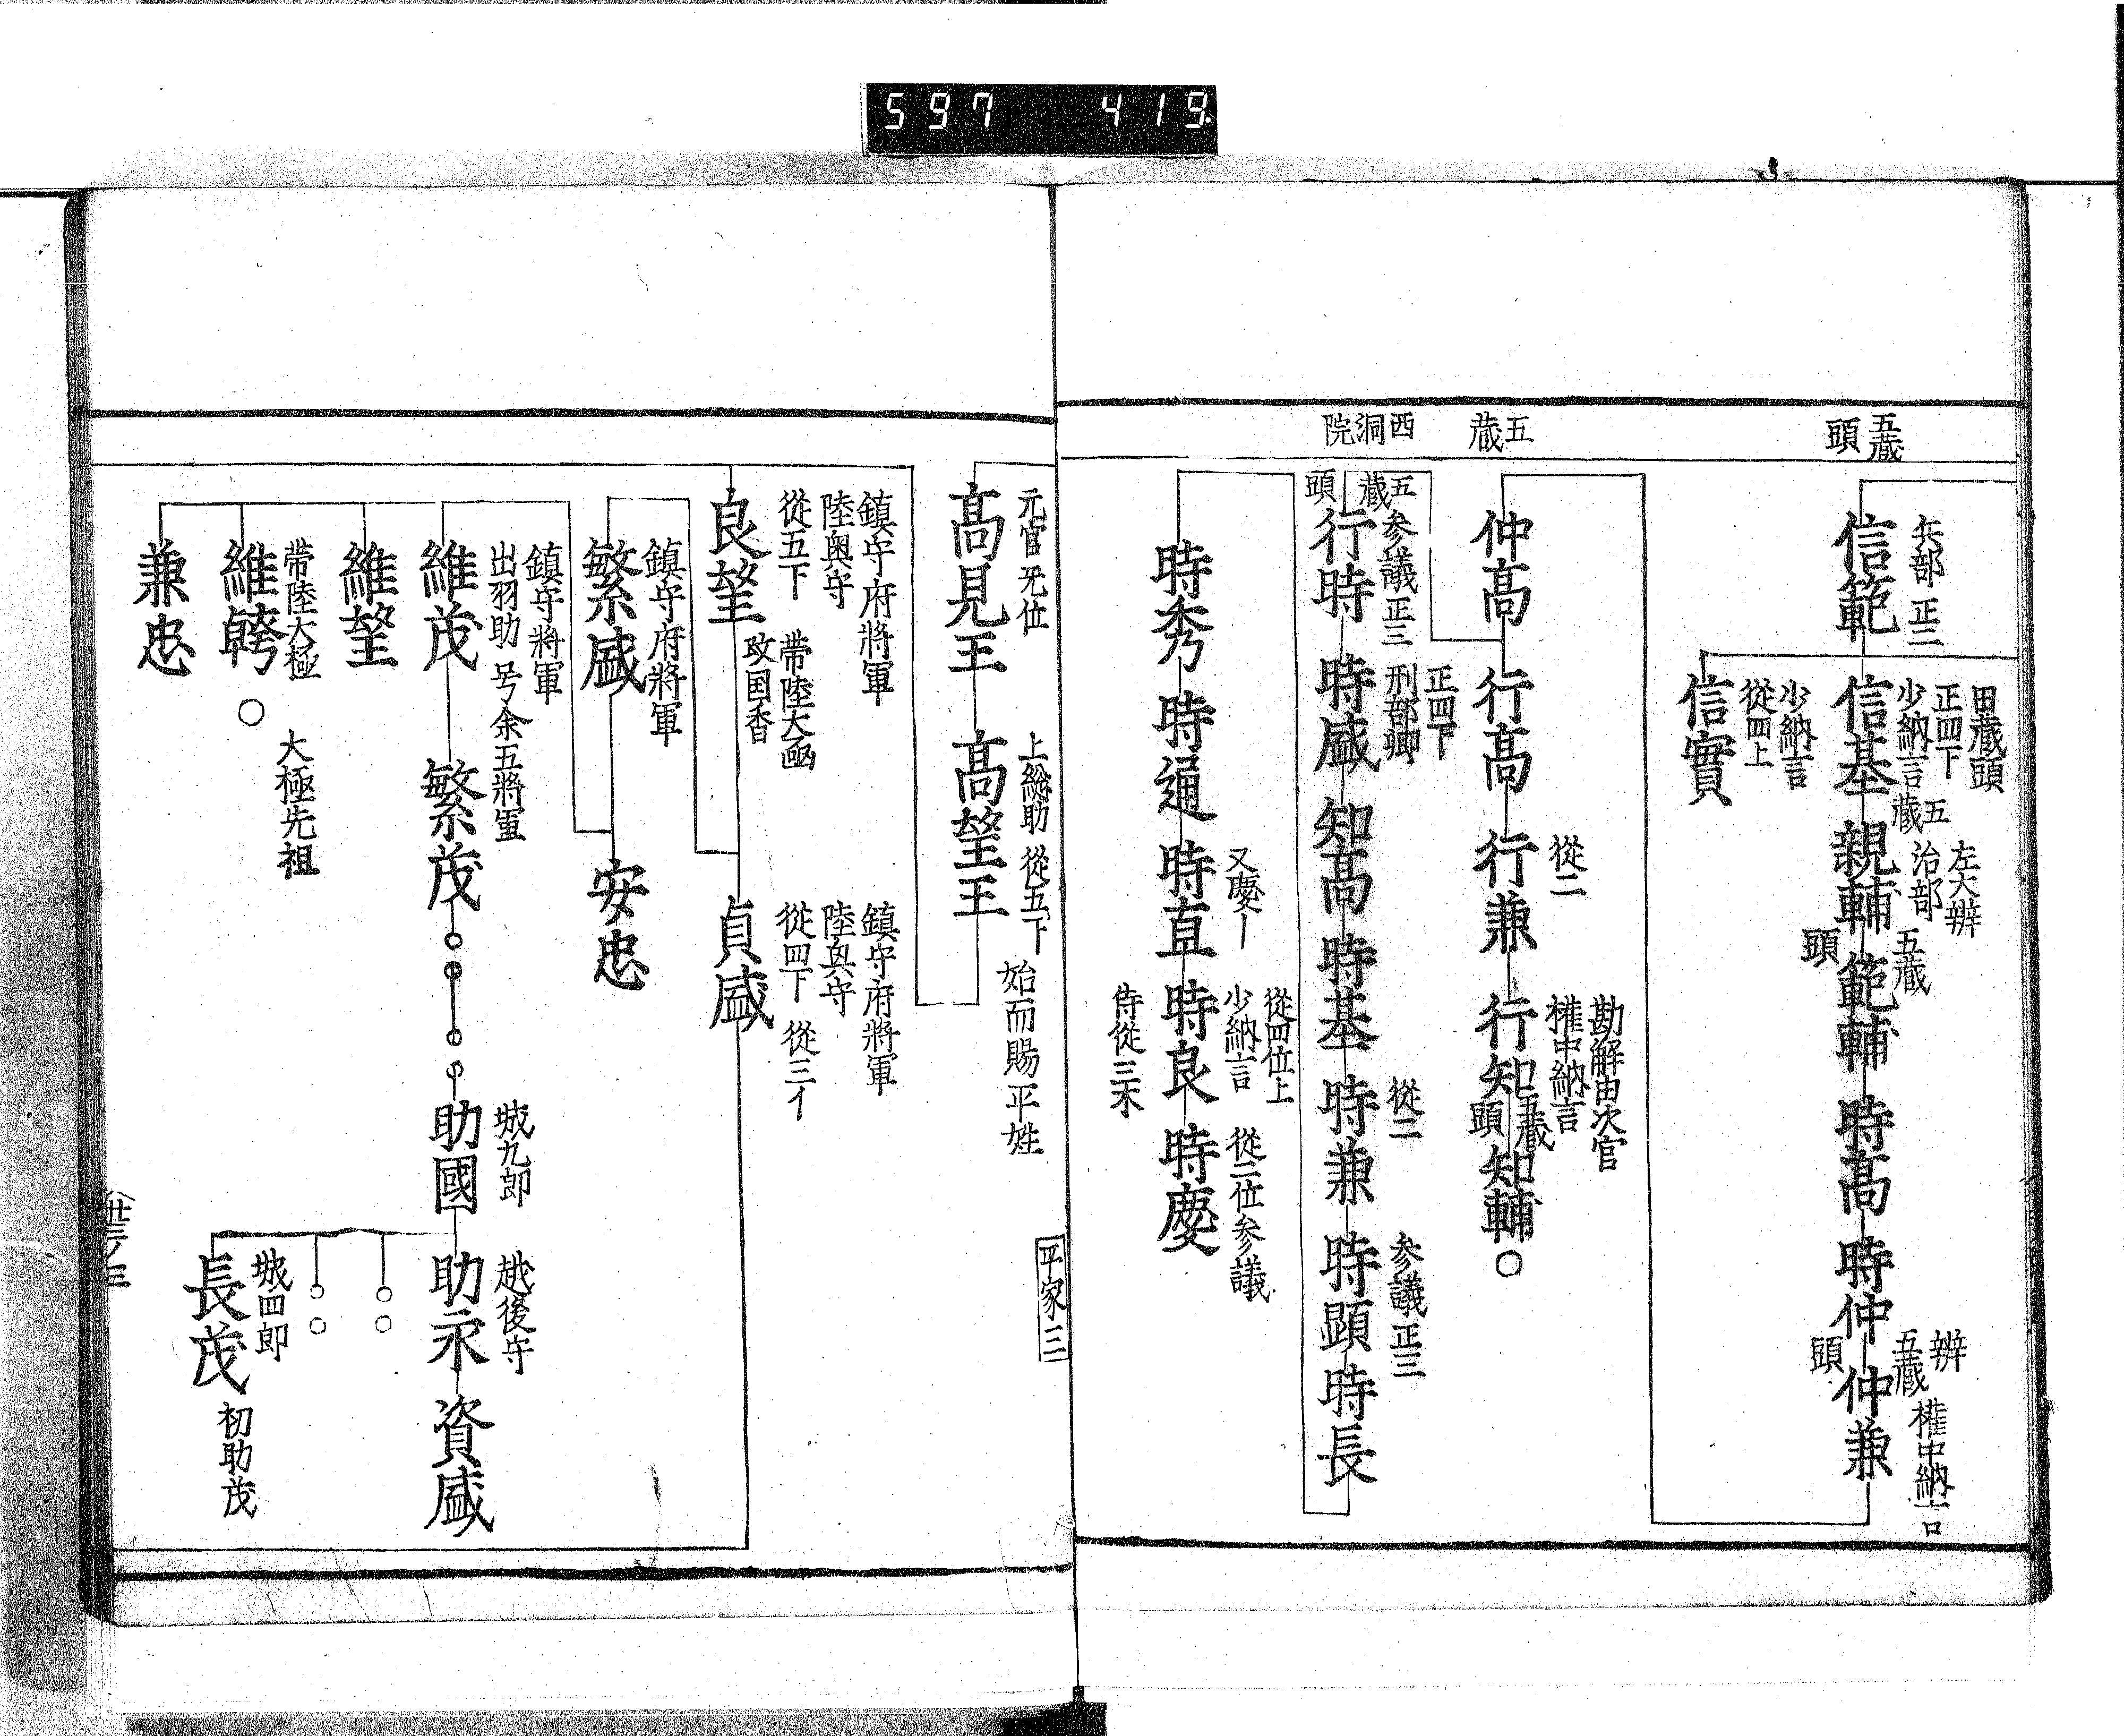 597 419
五藏
頭
兵部 正二
信範
田藏頭
正四下
少納言
信基
五藏
左大辨
治部
親輔
五藏
頭
範輔
時高
時仲
辨
五藏
頭
權中納言
仲兼
少納言
從四上
信實
五藏
仲高
行高
從二
行兼
勘解由次官
權中納言
行知
五藏
頭
知輔○
西洞院
五藏
頭
参議正三
行時
正四下
刑部卿
時盛
知高
時基
從二
時兼
参議正三
時顕
時長
時秀
時通
又慶ー
時直
從四位上
少納言
時良
侍從三木
從二位参議
時慶
平家三
元官 无位
高見王
上総助 從五下
始而賜平姓
高望王
鎮守府將軍
陸奥守
從五下
帯陸大
良望
改国香
鎮守府將軍
陸奥守
從四下 從三イ
貞盛
鎮守府將軍
繁盛
安忠
鎮守將軍
出羽助 号余五將軍
維茂
繁茂
城九郎
助國
越後守
助永
資盛
○○
○○
城四郎
長茂
初助茂
維望
帯陸大極
維○
大極先祖
兼忠
丗三ノ三